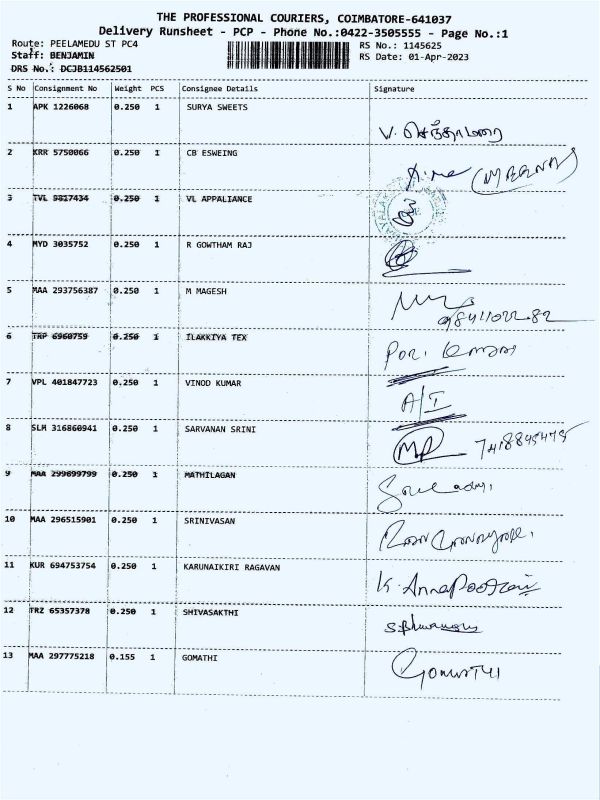 THE PROFESSIONAL COURIERS, COIMBATORE-641037
Delivery Runsheet - PCP - Phone No.:0422-3505555 - Page No.:1
Route: PEELAMEDU ST PC4
RS No.: 1145625
Staff: BENJAMIN
RS Date: 01-Apr-2023
DRS No.: DCJB114562501
S No Consignment No Weight PCS Consignee Details Signature
1 APK 1226068 0.250 1 SURYA SWEETS
V. செந்தாமரை
2 KRR 5750066 0.250 1 CB ESWEING
3 TVL 9817434 0.250 1 VL APPALIANCE
4 MYD 3035752 0.250 1 R GOWTHAM RAJ
5 MAA 293756387 0.250 1 M MAGESH
6 TRP 6960759 0.250 1 ILAKKIYA TEX
7 VPL 401847723 0.250 1 VINOD KUMAR
A/I
8 SLM 316860941 0.250 1 SARVANAN SRINI
9 MAA 299699799 0.250 1 MATHILAGAN
10 MAA 296515901 0.250 1 SRINIVASAN
11 KUR 694753754 0.250 1 KARUNAIKIRI RAGAVAN
12 TRZ 65357378 0.250 1 SHIVASAKTHI
13 MAA 297775218 0.155 1 GOMATHI